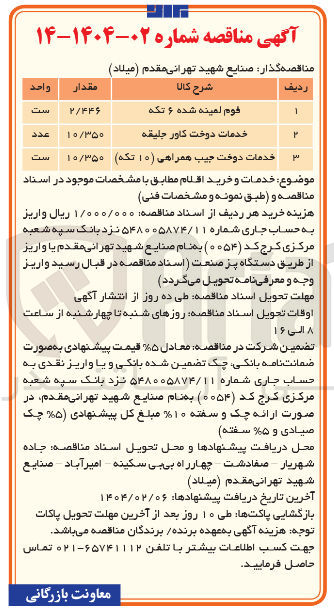 آگهی مناقصه شماره ۰۲-۱۴۰۴-۱۴
مناقصه‌گذار: صنایع شهید تهرانی‌مقدم (میلاد)
ردیف شرح کالا مقدار واحد
۱ فوم لمینه شده ۶ تکه ۲/۴۴۶ ست
۲ خدمات دوخت کاور جلیقه ۱۰/۳۵۰ عدد
۳ خدمات دوخت جیب همراهی (۱۰ تکه) ۱۰/۳۵۰ ست
موضوع: خدمات و خرید اقلام مطابق با مشخصات موجود در اسناد
مناقصه و (طبق نمونه و مشخصات فنی)
هزینه خرید هر ردیف از اسناد مناقصه: ۱/۰۰۰/۰۰۰ ریال واریز
به حساب جاری شماره ۵۴۸۰۰۵۸۷۴/۱۱ نزد بانک سپه شعبه
مرکزی کرج کد (۰۰۵۴) به‌نام صنایع شهید تهرانی‌مقدم یا واریز
از طریق دستگاه پز صنعت (اسناد مناقصه در قبال رسید واریز
وجه و معرفی‌نامه تحویل می‌گردد)
مهلت تحویل اسناد مناقصه: طی ده روز از انتشار آگهی
اوقات تحویل اسناد مناقصه: روزهای شنبه تا چهارشنبه از ساعت
۸ الی ۱۶
تضمین شرکت در مناقصه: معادل ۵% قیمت پیشنهادی به‌صورت
ضمانت‌نامه بانکی، چک تضمین شده بانکی و یا واریز نقدی به
حساب جاری شماره ۵۴۸۰۰۵۸۷۴/۱۱ نزد بانک سپه شعبه
مرکزی کرج کد (۰۰۵۴) به‌نام صنایع شهید تهرانی‌مقدم، در
صورت ارائه چک و سفته ۱۰% مبلغ کل پیشنهادی (۵% چک
صیادی و ۵% سفته)
محل دریافت پیشنهادها و محل تحویل اسناد مناقصه: جاده
شهریار – صفادشت – چهارراه بی‌بی سکینه – امیرآباد – صنایع
شهید تهرانی‌مقدم (میلاد)
آخرین تاریخ دریافت پیشنهادها: ۱۴۰۴/۰۲/۰۶
بازگشایی پاکت‌ها: طی ۱۰ روز بعد از آخرین مهلت تحویل پاکات
توجه: هزینه آگهی به‌عهده برنده/ برندگان مناقصه می‌باشد.
جهت کسب اطلاعات بیشتر با تلفن ۶۵۷۴۱۱۱۲-۰۲۱ تماس
حاصل فرمایید.
معاونت بازرگانی